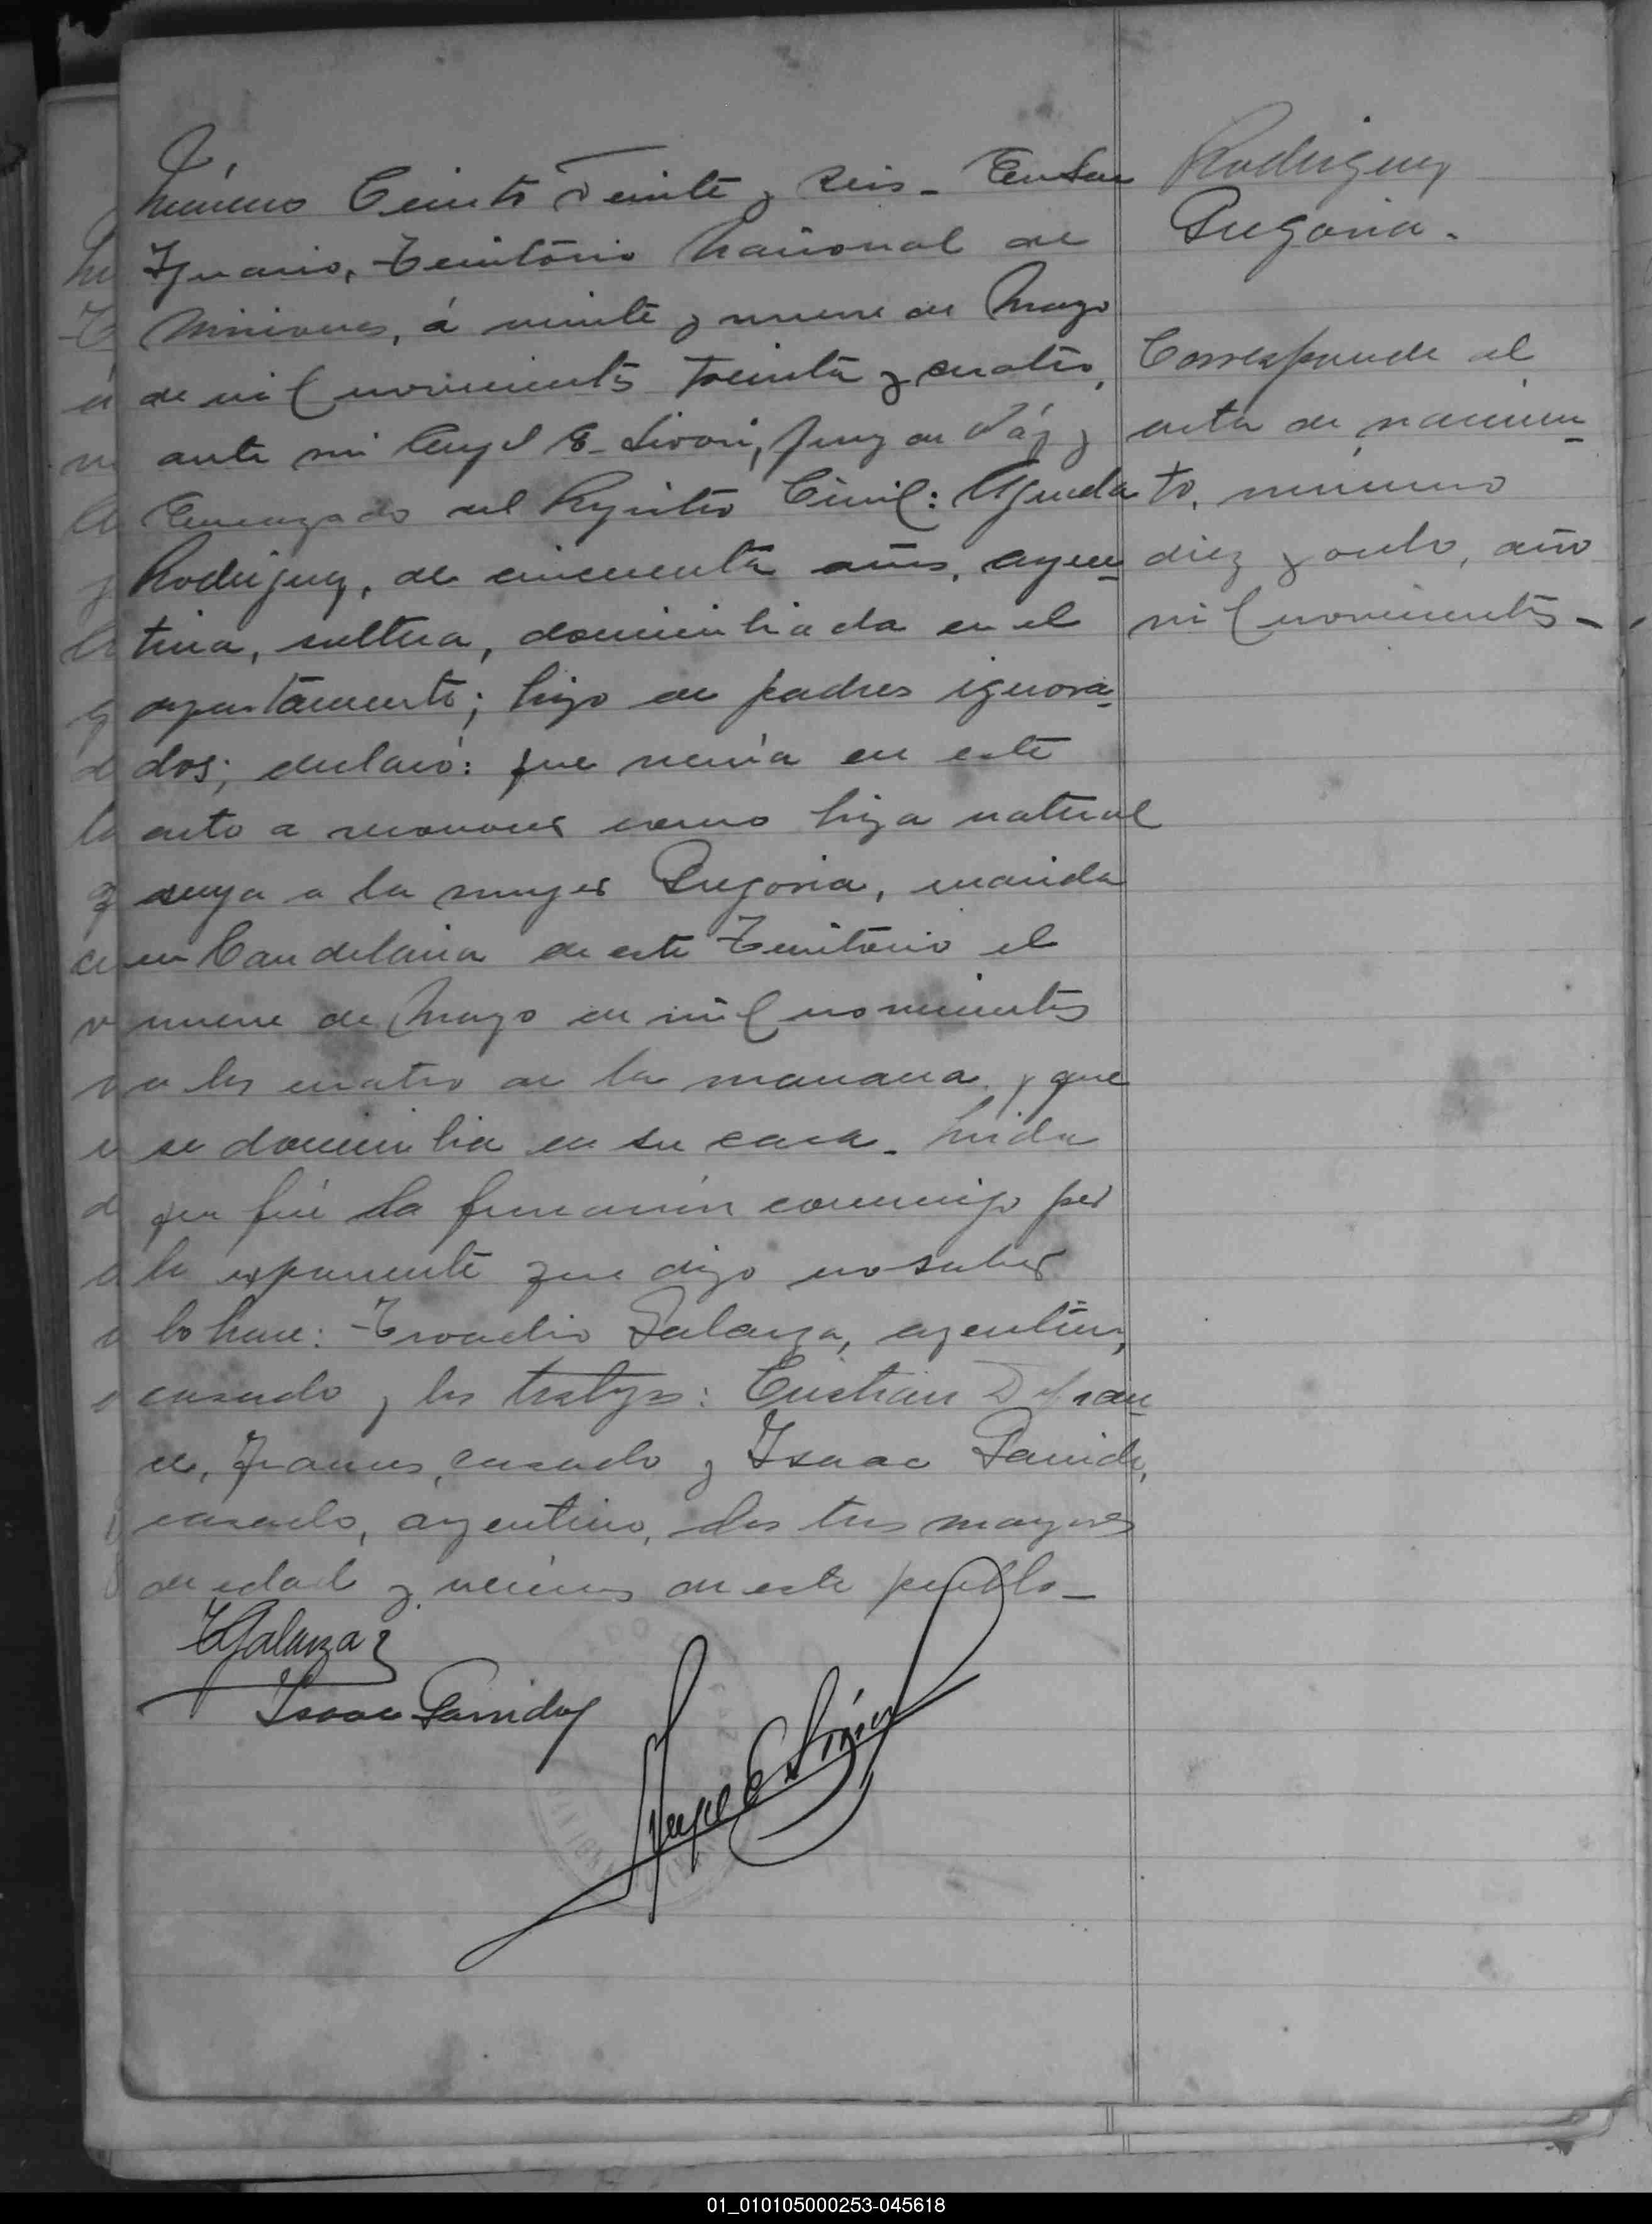 Número Ciento Veinte y Seis_ En San
Ignacio, Territorio Nacional de
Misiones, á veinte y nueve de Mayo
de mil novecientos treinta y cuatro,
ante mi Angel E. Sivori, Juez de Páz y
Encargado del Registro Civil: Agueda
Rodriguez, de cincuenta años, argen=
tina, soltera, domiciliada en el
departamento; hija de padres ignora=
dos; declaró: que venía en este
acto a reconocer como hija natural
suya a la mujer Gregoria, nacida
en Candelaria de este Territorio el
nueve de Mayo de mil novecientos
a las cuatro de la mañana y que
se domicilia en su casa. Leida
que fué la firmaron conmigo por
la exponente que dijo no saber
lo hace: Galarza, argentino,
casado y los testigos: Cristian
Frances, casado y Isaac Garrido,
casado, argentino, los tres mayores
de edad y vecinos de este pueblo_
Galarza
Isaac Garrido
Angel E Sivori
Rodriguez
Gregoria.
Corresponde al
acta de nacimien=
to, número
diez y ocho, año
mil novecientos_
01_010105000253-045618